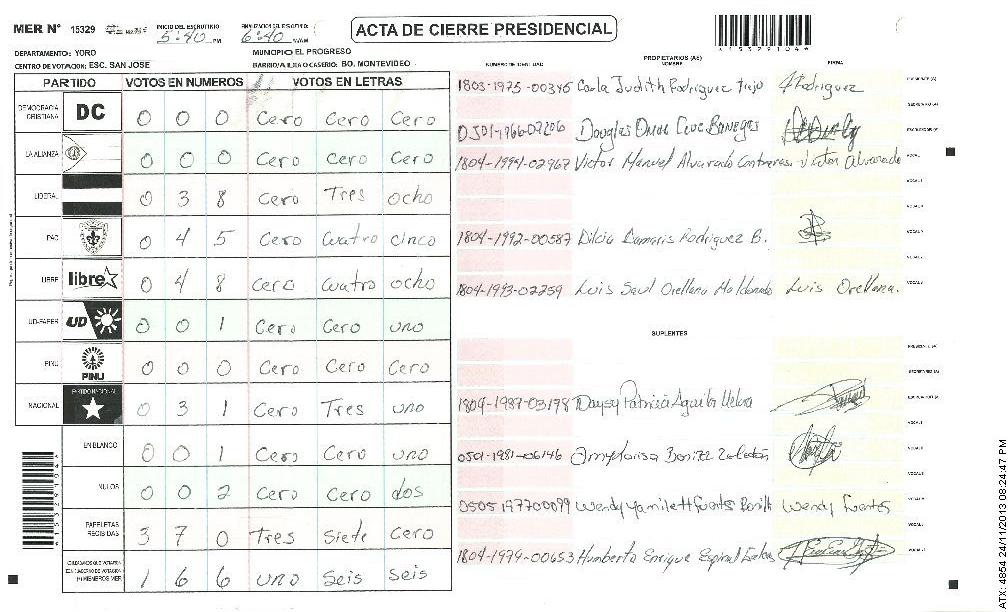 MER N° 15329 INICIO DEL ESCRUTINIO 5:40 PM FINALIZACION DEL ESCRUTINIO 6:40 ACTA DE CIERRE PRESIDENCIAL
DEPARTAMENTO: YORO MUNICPIO EL PROGRESO
CENTRO DE VOTACION: ESC. SAN JOSE BARRIO/ALDEA O CASERIO: BO. MONTEVIDEO
PARTIDO VOTOS EN NUMEROS VOTOS EN LETRAS
DEMOCRACIA CRISTIANA DC 0 0 0 Cero Cero Cero
LA ALIANZA 0 0 0 Cero Cero Cero
LIBERAL 0 3 8 Cero Tres ocho
PAC 0 4 5 Cero Cuatro cinco
LIBRE libre 0 4 8 cero cuatro ocho
UD-FAPER UD 0 0 1 Cero Cero uno
PINU PINU 0 0 0 Cero Cero Cero
NACIONAL PARTIDO NACIONAL 0 3 1 Cero Tres uno
EN BLANCO 0 0 1 Cero Cero uno
NULOS 0 0 2 Cero Cero dos
PAPELETAS RECIBIDAS 3 7 0 Tres Siete Cero
1 6 6 uno Seis Seis
NUMERO DE IDENTIDAD PROPIETARIOS (AS) NOMBRE FIRMA
1803-1975-00345 Carla Judith Rodriguez Trejo Rodriguez
0501-1966-07206 Douglas Omar
1804-1994-02967 Victor Manuel Alvarado Contreras Victor Alvarado
1804-1992-00587 Dilcia Damaris Rodriguez B.
1804-1993-02259 Luis Saul Orellana Maldonado Luis Orellana.
SUPLENTES
1804-1987-03178 Daysy Patricia Aguilar
0501-1981-06146
0505197700099 Wendy Yamileth Fuentes Bonilla Wendy Fuentes
1804-1979-00653 Humberto Enrique Espinal
ATX: 4854 24/11/2013 08:24:47 PM